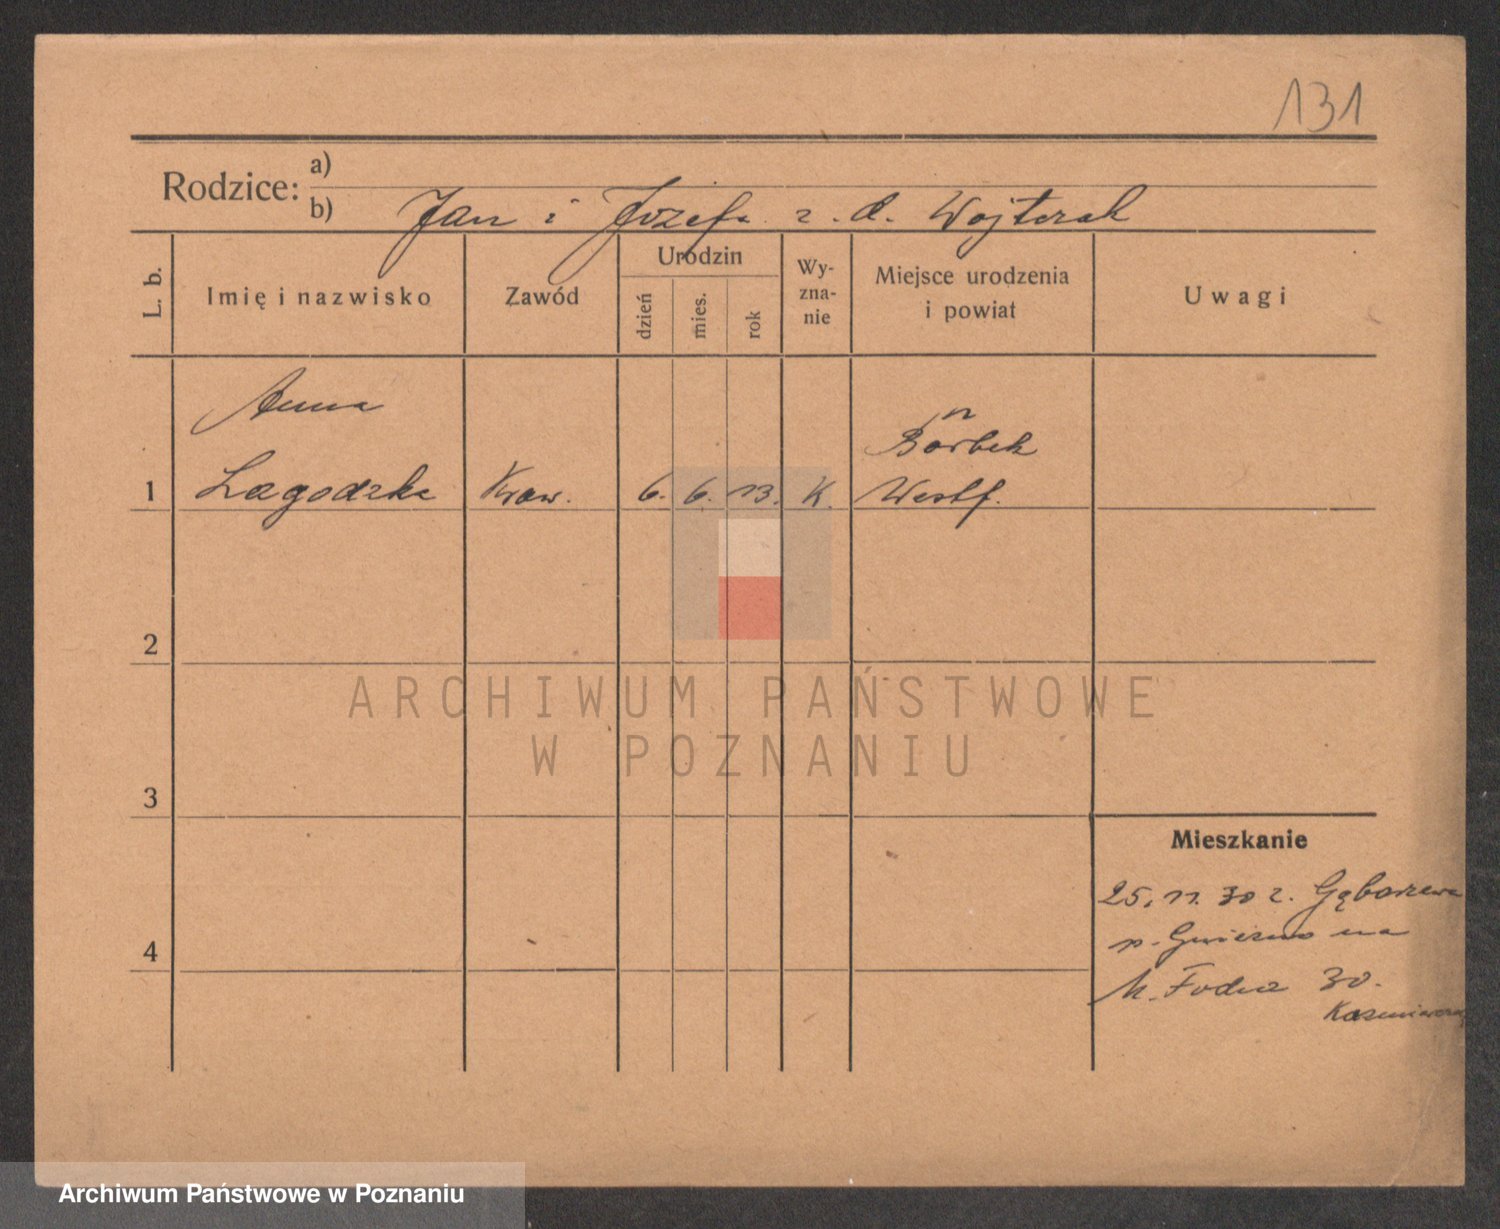 131
Rodzice:
a)
b) Jan i Józefa z. d. Wojtczak
L. b.
Imię i nazwisko
Zawód
Urodzin
dzień
mies.
rok
Wy-
zna-
nie
Miejsce urodzenia
i powiat
Uwagi
Anna
1 Łagodzka Kraw. 6. 6. 13. K. Borbek
Westf.
2
3
4
Mieszkanie
25. 11. 30 z.
p. Gniezno na
30.
ARCHIWUM PAŃSTWOWE
W POZNANIU
Archiwum Państwowe w Poznaniu